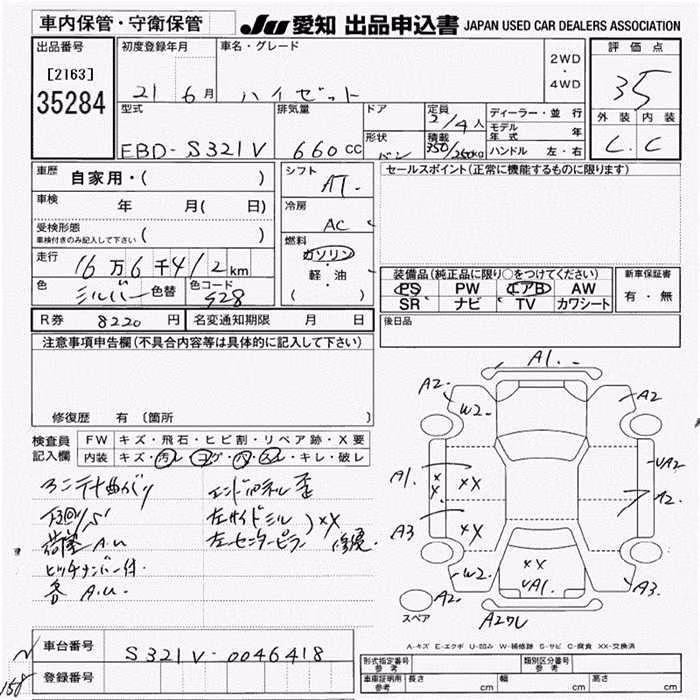 車内保管・守衛保管
JU 愛知 出品申込書 JAPAN USED CAR DEALERS ASSOCIATION
出品番号
[2163]
35284
初度登録年月
21 6月
車名・グレード
ハイゼット
2WD
・
4WD
評価点
35
外装 内装
C. C
型式
EBD-S321V
排気量
660cc
ドア
形状
バン
定員
2/4人
積載
350/250kg
ディーラー・並行
モデル年式 年
ハンドル 左・右
車歴
自家用・( )
車検 年 月( 日)
受検形態
車検付きのみ記入して下さい ( )
走行
16万6千412km
色
シルバー
色替
色コード
S28
シフト
AT
冷房
AC
燃料
ガソリン
軽・油
( )
セールスポイント(正常に機能するものに限ります)
装備品(純正品に限り○をつけてください)
PS PW エアB AW
SR ナビ TV カワシート
新車保証書
有・無
R券 8220円
名変通知期限 月 日
後日品
注意事項申告欄(不具合内容等は具体的に記入して下さい)
修復歴 有〔箇所 〕
検査員
記入欄
FW キズ・飛石・ヒビ割・リペア跡・X要
内装 キズ・汚レ・コゲ・穴・スレ・キレ・破レ
アンテナ曲がり
下回りS
荷室A.U
ヒッチメンバー付
各A.U.
エンドパネル歪
左サイドシル
左センターピラー
)XX
修復
A1.
A2.
W2.
A2
A1.
XX
XX
UA2
A2.
A3
XX
XX
UA1.
W2.
A2.
A3.
A2ワレ
スペア
A-キズ E-エクボ U-凹み W-補修跡 S-サビ C-腐食 XX-交換済
車台番号
S321V-0046418
登録番号
158
形式指定番号
参考
類別区分番号
参考
車庫証明用
参考
長さ cm 幅 cm 高さ cm